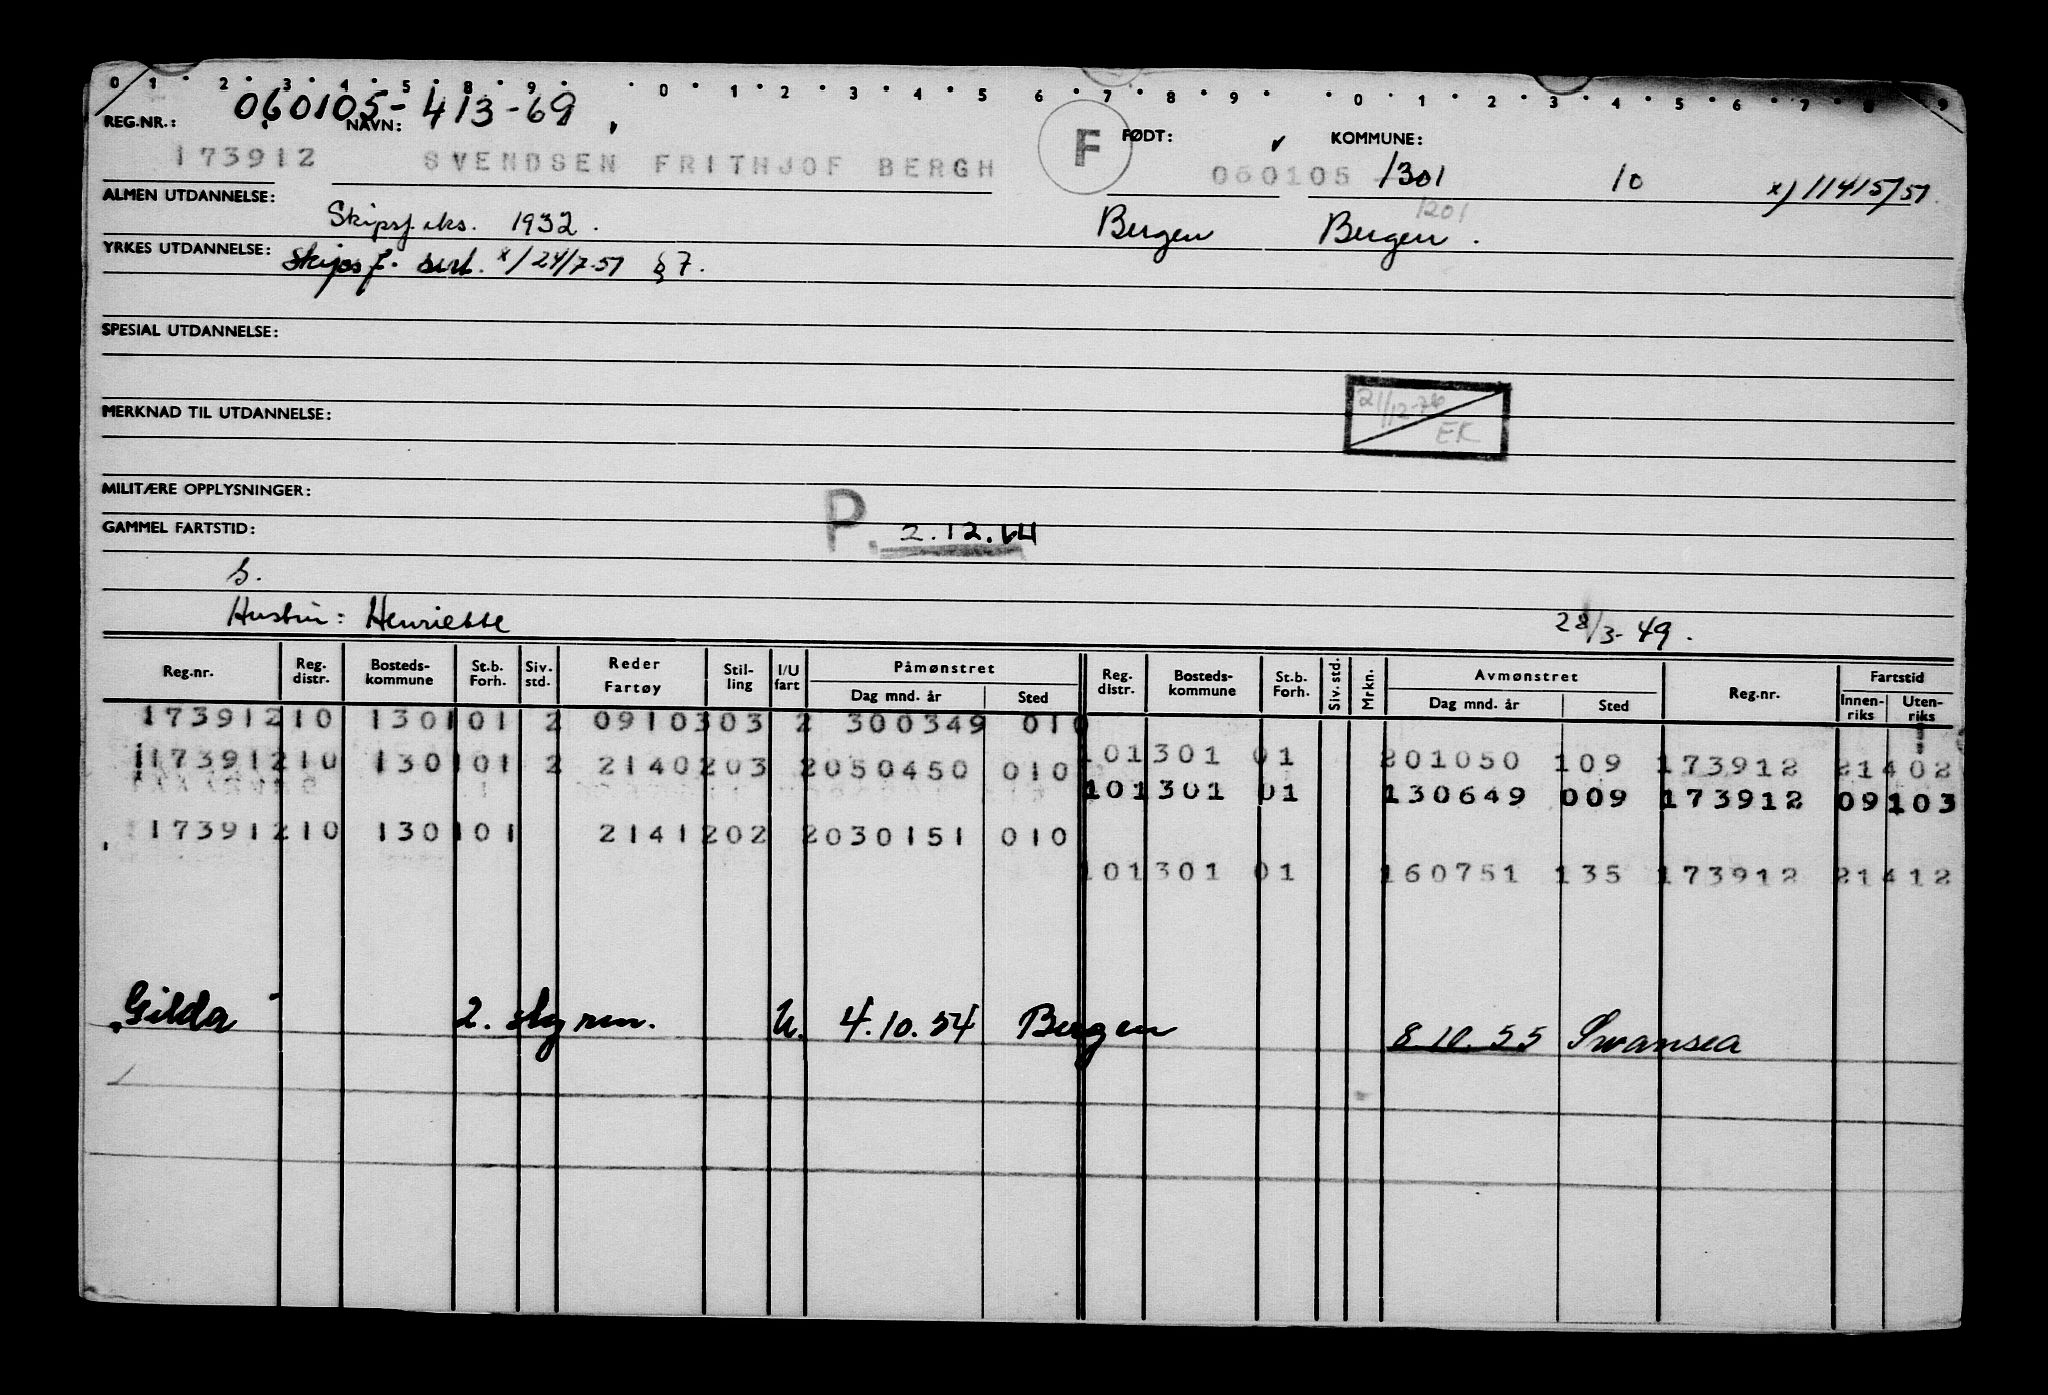 0 1 2 3 4 5 8 9 0 1 2 3 4 5 6 7 8 9 0 1 2 3 4 5 6 7 8 9
060105-413-69
REG.NR.: NAVN: F FØDT: KOMMUNE:
173912 SVENDSEN FRITHJOF BERGH 060105 1301 10 x) 11415/51
1201
ALMEN UTDANNELSE: Skipsf. eks. 1932. Bergen Bergen.
YRKES UTDANNELSE: Skipsf. sert. x/ 24/7-51 § 7.
SPESIAL UTDANNELSE:
21/12-76
EK
MERKNAD TIL UTDANNELSE:
MILITÆRE OPPLYSNINGER:
GAMMEL FARTSTID: P. 2.12.64
S.
Hustru: Henriette 28/3-49.
Reg.nr. Reg. distr. Bosteds-kommune St.b. Forh. Siv. std. Reder Fartøy Stil-ling I/U fart Påmønstret Dag mnd. år Sted Reg. distr. Bosteds-kommune St.b. Forh. Siv. std. Mrkn. Avmønstret Dag mnd. år Sted Reg.nr. Fartstid Innen-riks Uten-riks
173912 10 1301 01 2 09103 03 2 300349 010
101301 01 201050 109 173912 21402
173912 10 1301 01 2 21402 03 2 050450 010
101301 01 130649 009 173912 09103
173912 10 1301 01 21412 02 2 030151 010
101301 01 160751 135 173912 21412
Gilda 2. styrm. U. 4.10.54 Bergen 8.10.55 Swansea